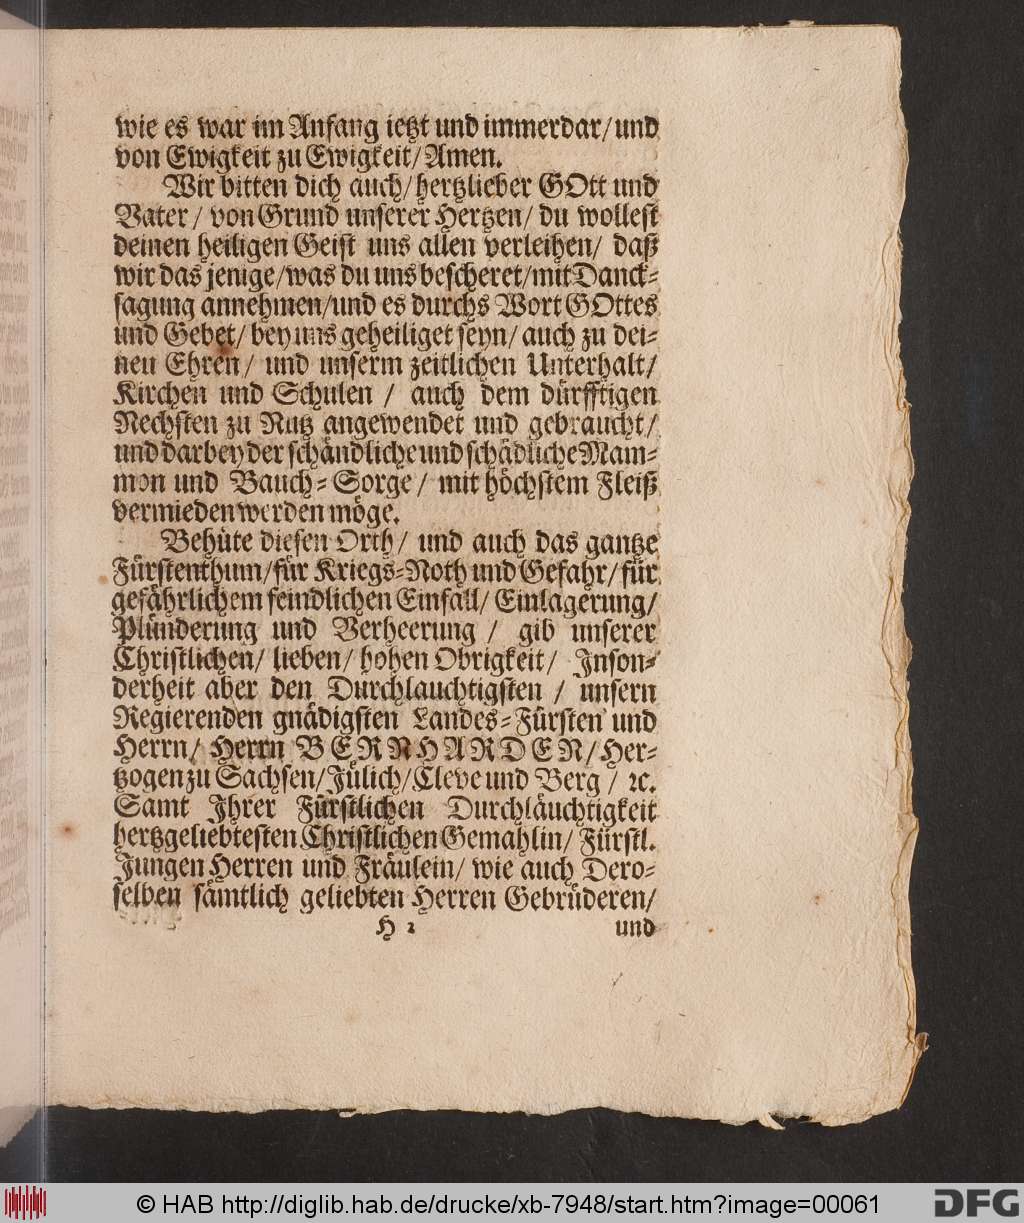 wie es war im Anfang ietzt und immerdar/und
von Ewigkeit zu Ewigkeit/Amen.
Wir bitten dich auch/hertzlieber GOtt und
Vater/ von Grund unserer Hertzen/ du wollest
deinen heiligen Geist uns allen verleihen/ daß
wir das jenige/was du uns bescheret/mit Danck-
sagung annehmen/und es durchs Wort GOttes
und Gebet/ bey uns geheiliget seyn/ auch zu dei-
nen Ehren/ und unserm zeitlichen Unterhalt/
Kirchen und Schulen / auch dem dürfftigen
Nechsten zu Nutz angewendet und gebraucht/
und darbey der schändliche und schädliche Mam-
mon und Bauch-Sorge/ mit höchstem Fleiß
vermieden werden möge.
Behüte diesen Orth/ und auch das gantze
Fürstenthum/für Kriegs-Noth und Gefahr/für
gefährlichem feindlichen Einfall/ Einlagerung/
Plünderung und Verheerung / gib unserer
Christlichen/ lieben/ hohen Obrigkeit/ Inson-
derheit aber den Durchlauchtigsten / unsern
Regierenden gnädigsten Landes-Fürsten und
Herrn/ Herrn BERNHARDEN/Her-
tzogen zu Sachsen/Jülich/Cleve und Berg / ꝛc.
Samt Ihrer Fürstlichen Durchläuchtigkeit
hertzgeliebtesten Christlichen Gemahlin/ Fürstl.
Jungen Herren und Fräulein/ wie auch Dero-
selben sämtlich geliebten Herren Gebrüderen/
H 2 und
© HAB http://diglib.hab.de/drucke/xb-7948/start.htm?image=00061 DFG